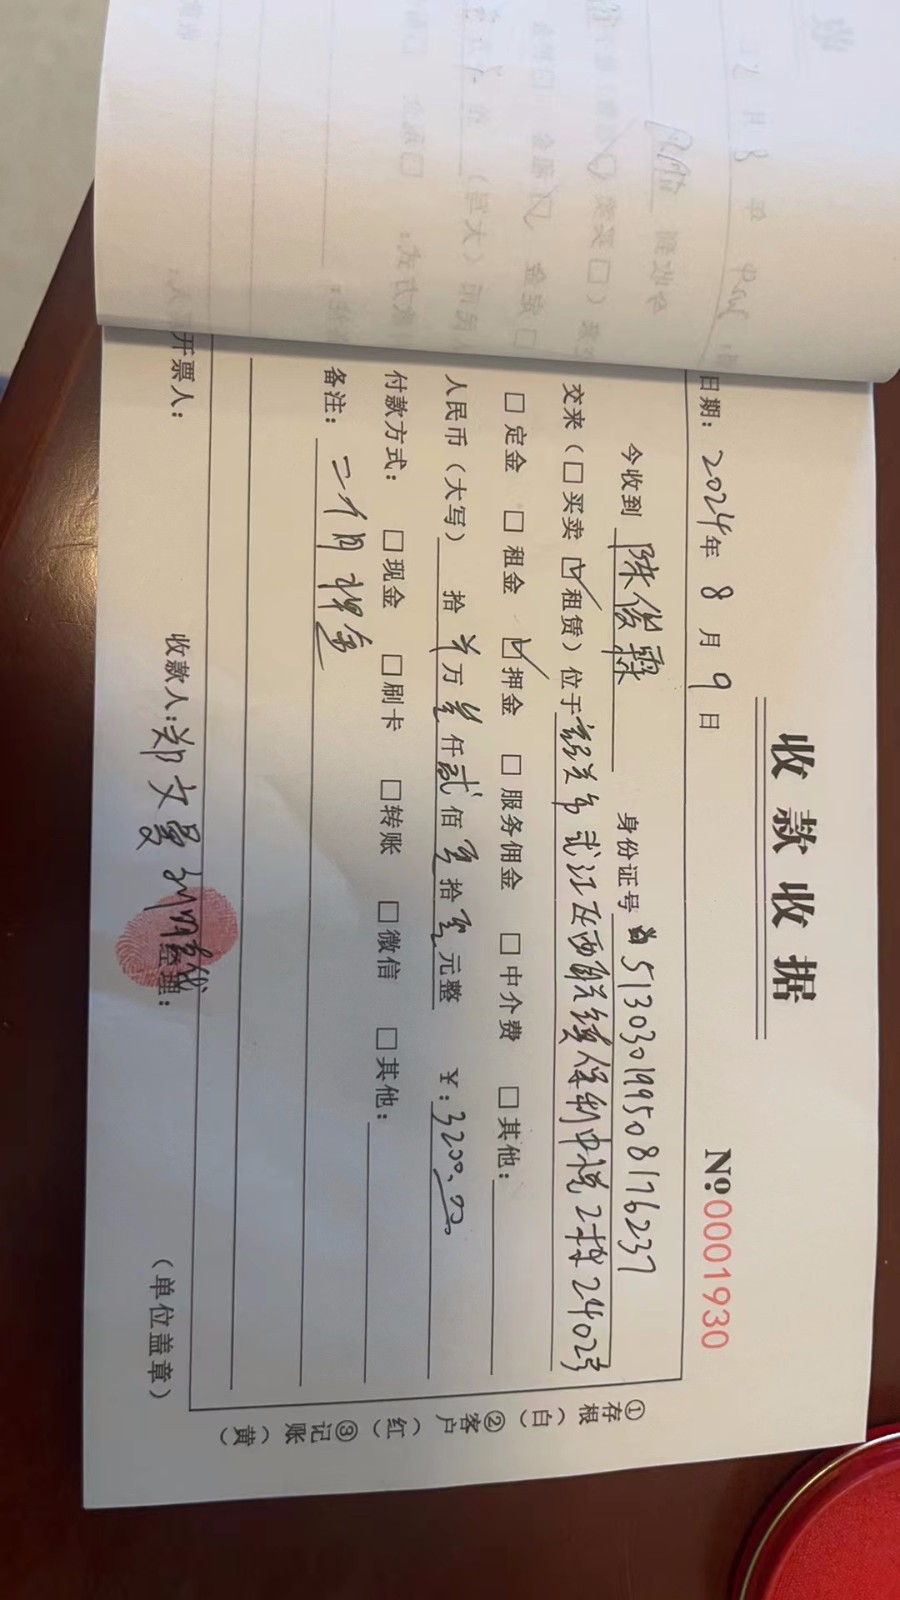 收款收据
№ 0001930
日期：2024年 8 月 9 日
今收到 陈俊霖 身份证号 513030199508176237
交来（□买卖 ☑租赁）位于韶关市武江区西联镇保利中悦2栋2402号
□定金 □租金 ☑押金 □服务佣金 □中介费 □其他：
人民币（大写） 拾 万 叁仟贰佰零拾零元整 ¥：3200.00
付款方式： □现金 □刷卡 □转账 □微信 □其他：
备注：二个月押金
开票人： 收款人：郑文曼 代 经理： （单位盖章）
①存根（白） ②客户（红） ③记账（黄）